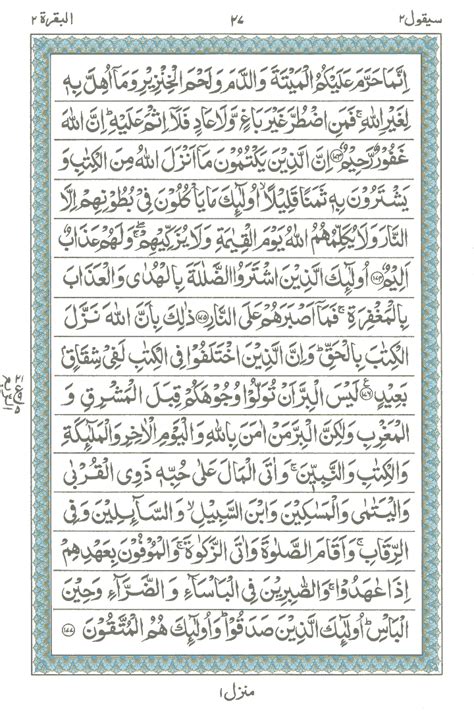 سیقول ٢ ٢٧ البقرة ٢
اِنَّمَا حَرَّمَ عَلَیْکُمُ الْمَیْتَةَ وَالدَّمَ وَلَحْمَ الْخِنْزِیْرِ وَمَاۤ اُهِلَّ بِهٖ
لِغَیْرِ اللهِ ۚ فَمَنِ اضْطُرَّ غَیْرَ بَاغٍ وَّلَا عَادٍ فَلَاۤ اِثْمَ عَلَیْهِ ؕ اِنَّ اللهَ
غَفُوْرٌ رَّحِیْمٌ ﴿۱۷۳﴾ اِنَّ الَّذِیْنَ یَکْتُمُوْنَ مَاۤ اَنْزَلَ اللهُ مِنَ الْکِتٰبِ وَ
یَشْتَرُوْنَ بِهٖ ثَمَنًا قَلِیْلًا ۙ اُولٰٓئِکَ مَا یَاْکُلُوْنَ فِیْ بُطُوْنِهِمْ اِلَّا
النَّارَ وَلَا یُکَلِّمُهُمُ اللهُ یَوْمَ الْقِیٰمَةِ وَلَا یُزَکِّیْهِمْ ۚۖ وَلَهُمْ عَذَابٌ
اَلِیْمٌ ﴿۱۷۴﴾ اُولٰٓئِکَ الَّذِیْنَ اشْتَرَوُا الضَّلٰلَةَ بِالْهُدٰی وَالْعَذَابَ
بِالْمَغْفِرَةِ ۚ فَمَاۤ اَصْبَرَهُمْ عَلَی النَّارِ ﴿۱۷۵﴾ ذٰلِکَ بِاَنَّ اللهَ نَزَّلَ
الْکِتٰبَ بِالْحَقِّ ؕ وَاِنَّ الَّذِیْنَ اخْتَلَفُوْا فِی الْکِتٰبِ لَفِیْ شِقَاقٍۭ
بَعِیْدٍ ﴿۱۷۶﴾ لَیْسَ الْبِرَّ اَنْ تُوَلُّوْا وُجُوْهَکُمْ قِبَلَ الْمَشْرِقِ وَ
الْمَغْرِبِ وَلٰکِنَّ الْبِرَّ مَنْ اٰمَنَ بِاللهِ وَالْیَوْمِ الْاٰخِرِ وَالْمَلٰٓئِکَةِ
وَالْکِتٰبِ وَالنَّبِیّٖنَ ۚ وَاٰتَی الْمَالَ عَلٰی حُبِّهٖ ذَوِی الْقُرْبٰی
وَالْیَتٰمٰی وَالْمَسٰکِیْنَ وَابْنَ السَّبِیْلِ ۙ وَالسَّآئِلِیْنَ وَفِی
الرِّقَابِ ۚ وَاَقَامَ الصَّلٰوةَ وَاٰتَی الزَّکٰوةَ ۚ وَالْمُوْفُوْنَ بِعَهْدِهِمْ
اِذَا عٰهَدُوْا ۚ وَالصّٰبِرِیْنَ فِی الْبَاْسَآءِ وَ الضَّرَّآءِ وَحِیْنَ
الْبَاْسِ ؕ اُولٰٓئِکَ الَّذِیْنَ صَدَقُوْا ؕ وَاُولٰٓئِکَ هُمُ الْمُتَّقُوْنَ ﴿۱۷۷﴾
منزل ١